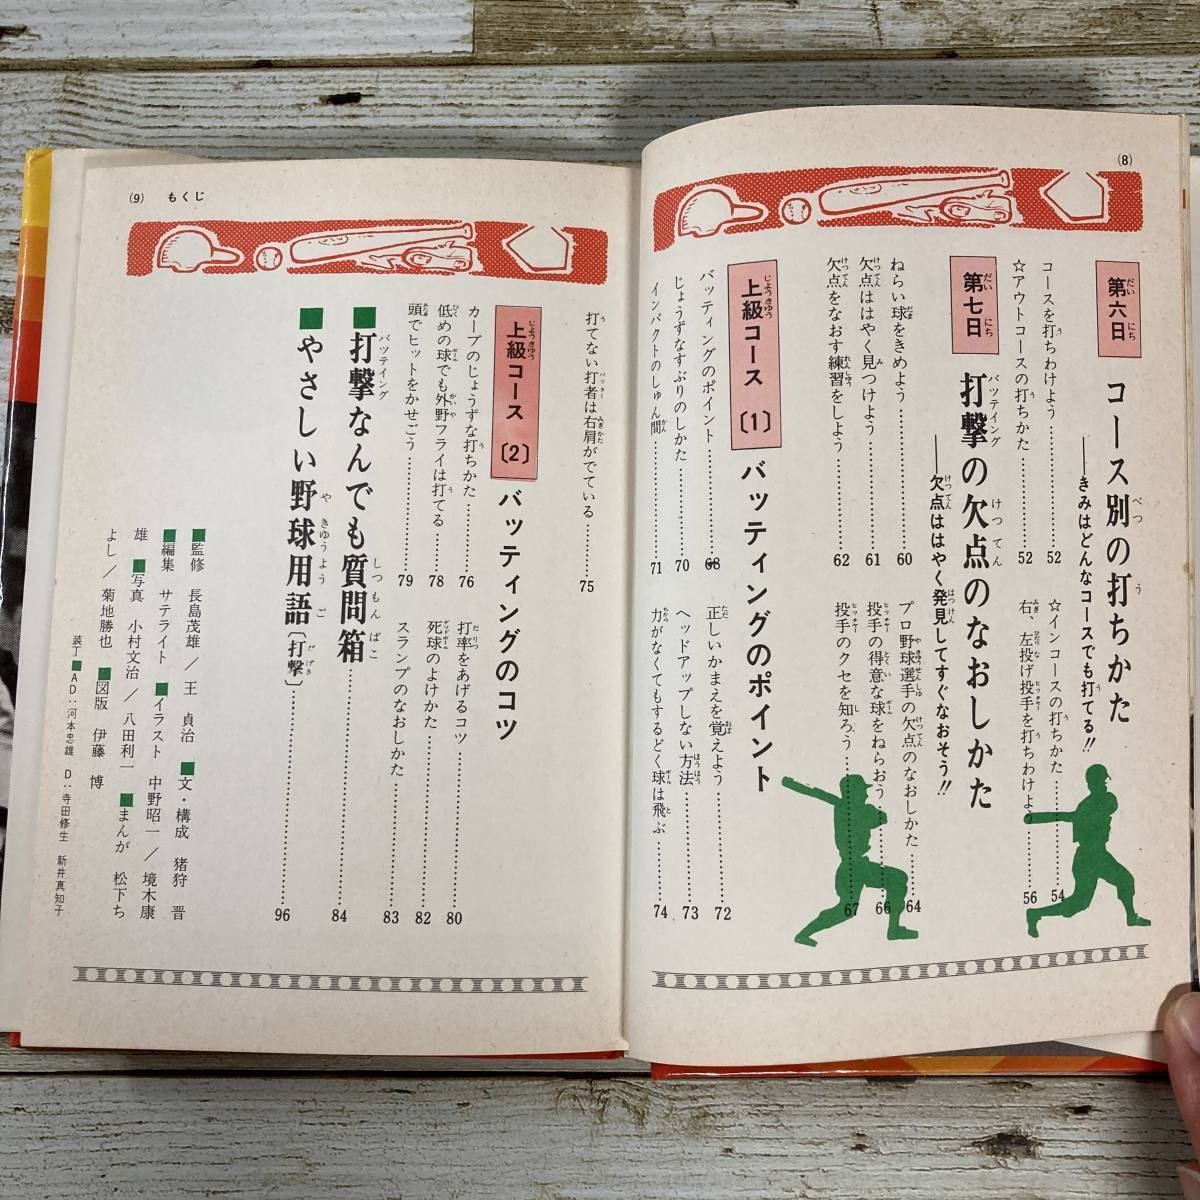 (8)
第六日 コース別の打ちかた
――きみはどんなコースでも打てる!!
コースを打ちわけよう……52
☆アウトコースの打ちかた……52
☆インコースの打ちかた……54
右、左投げ投手を打ちわけよう……56
第七日 打撃の欠点のなおしかた
――欠点ははやく発見してすぐなおそう!!
ねらい球をきめよう……60
欠点ははやく見つけよう……61
欠点をなおす練習をしよう……62
プロ野球選手の欠点のなおしかた……64
投手の得意な球をねらおう……66
投手のクセを知ろう……67
上級コース〔1〕 バッティングのポイント
バッティングのポイント……68
じょうずなすぶりのしかた……70
インパクトのしゅん間……71
正しいかまえを覚えよう……72
ヘッドアップしない方法……73
力がなくてもするどく球は飛ぶ……74
(9) もくじ
打てない打者は右肩がでている……75
上級コース〔2〕 バッティングのコツ
カーブのじょうずな打ちかた……76
低めの球でも外野フライは打てる……78
頭でヒットをかせごう……79
打率をあげるコツ……80
死球のよけかた……82
スランプのなおしかた……83
■打撃なんでも質問箱……84
■やさしい野球用語〔打撃〕……96
■監修 長島茂雄／王 貞治 ■文・構成 猪狩 晋
■編集 サテライト ■イラスト 中野昭一／境木康
雄 ■写真 小村文治／八田利一 ■まんが 松下ち
よし／菊地勝也 ■図版 伊藤 博
装丁■AD:河本忠雄 D:寺田修生 新井真知子